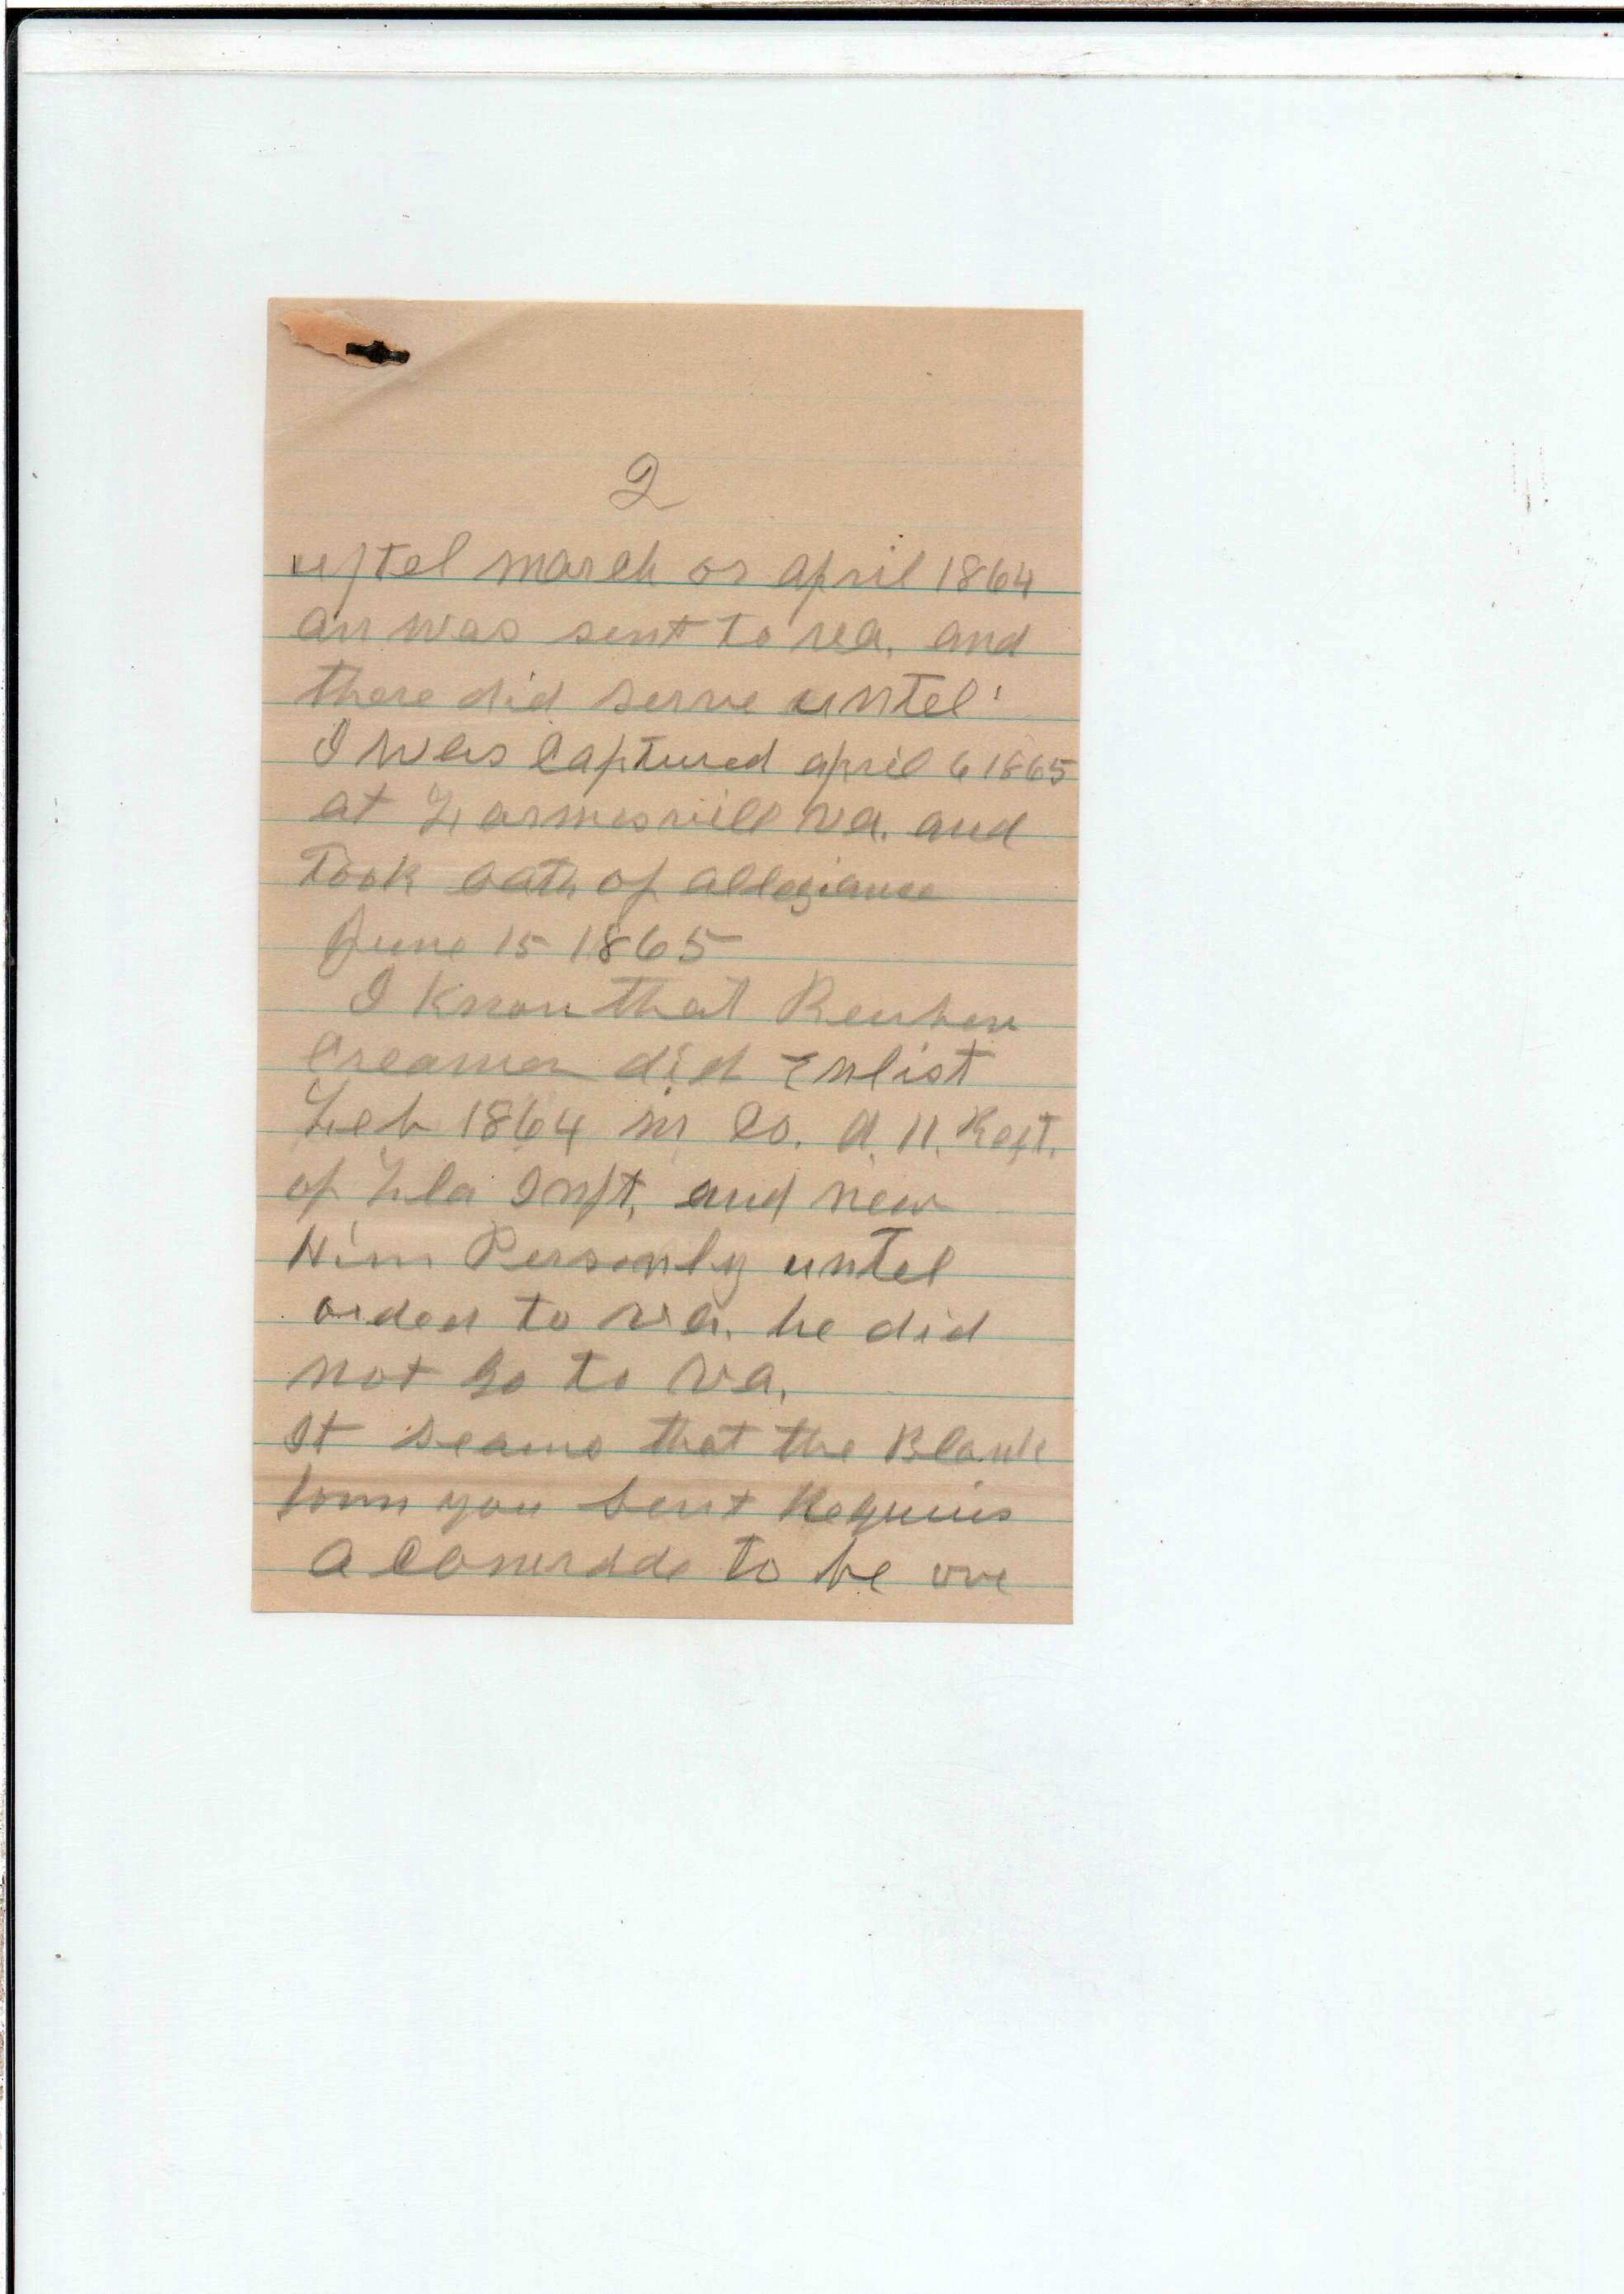 2
uptel march or april 1864
an was sent to va. and
there did serve untel
I was Captured april 6 1865
at Farmesvill va. and
Took oath of allegiance
June 15 1865
I Know that Reuben
Creamer did Enlist
Feb 1864 in Co. A. 11. Regt.
of Fla Inft, and new
Him Personly untel
orded to va. he did
not go to va.
It seams that the Blank
form you sent Requirs
a Comrade to be